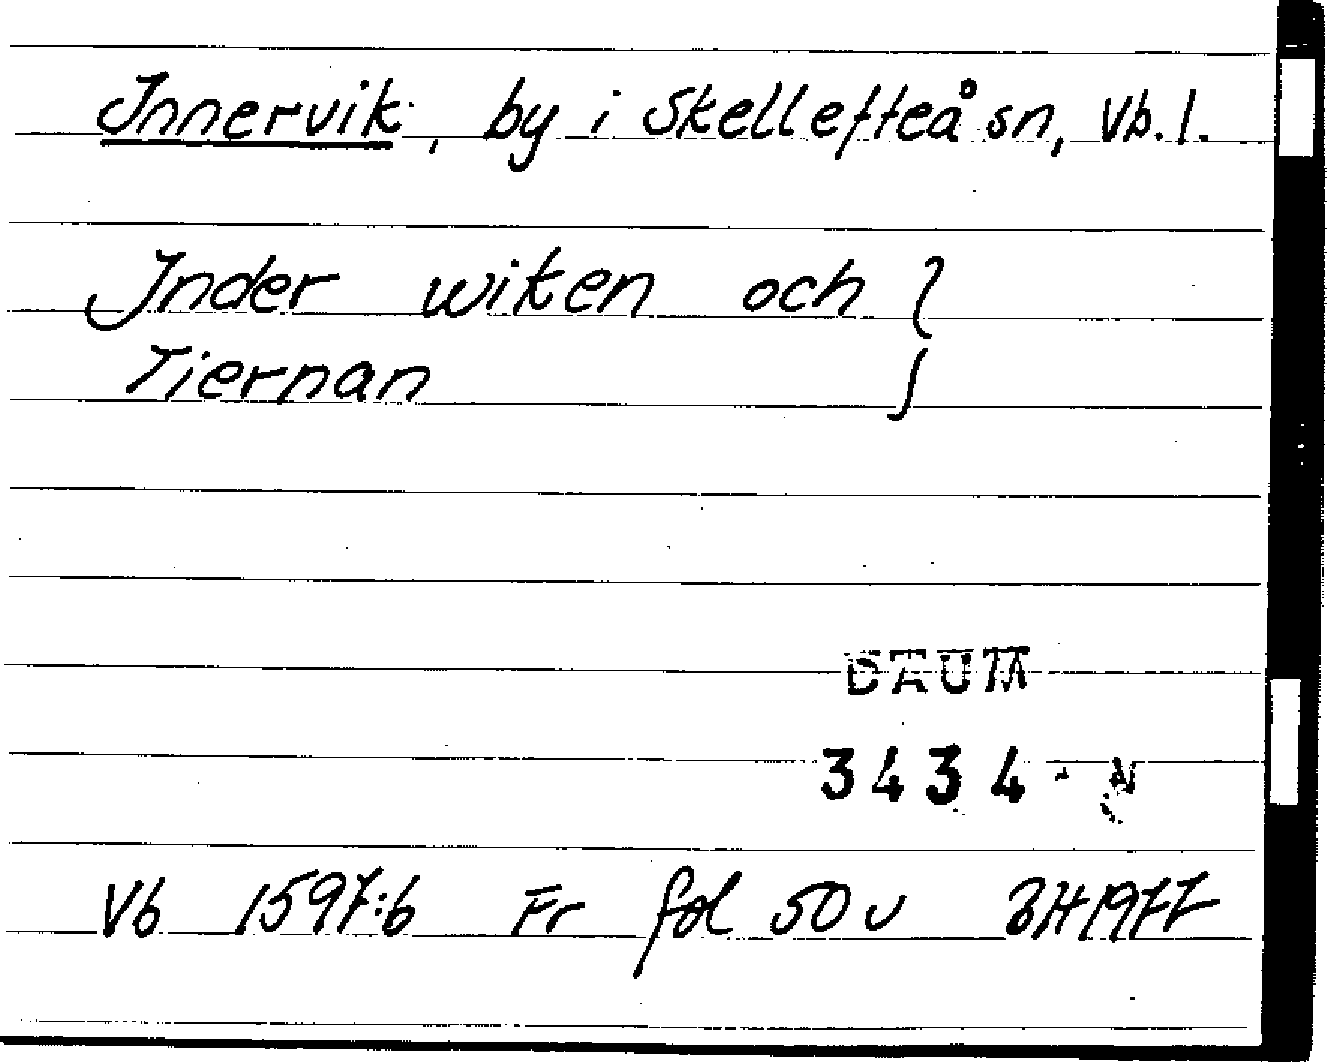 Innervik, by i Skellefteå sn, Vb. l.
Inder wiken och }
Tiernan
DAUM
3434
Vb 1597:6 Fr fol 50 v BH 1977